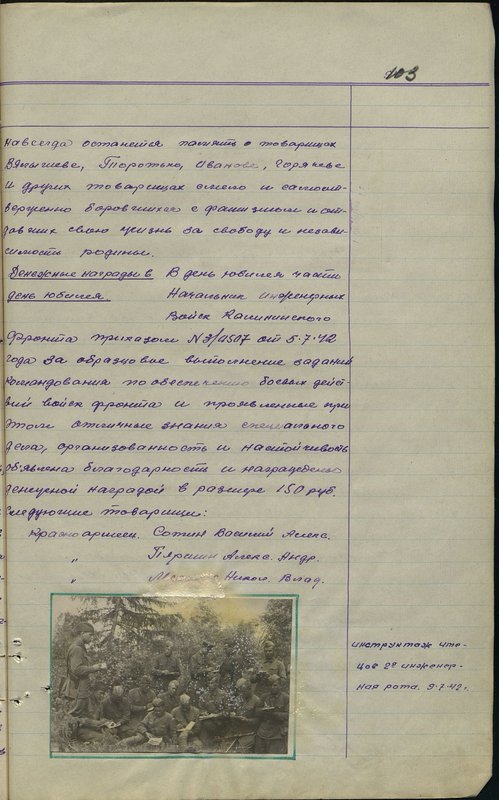 103
навсегда останется память о товарищах
Вялышеве, Торотько, Иванове, Горячеве
и других товарищах смело и самоот-
верженно боровшихся с фашизмом и от-
давших свою жизнь за свободу и незави-
симость родины.
Денежные награды в В день юбилея части
день юбилея. Начальник инженерных
Войск Калининского
Фронта приказом № 0507 от 5.7.42
года за образцовое выполнение заданий
командования по обеспечению боевых дейст-
вий войск фронта и проявленные при
этом отличные знания специального
дела, организованность и настойчивость
объявлена благодарность и награждены
денежной наградой в размере 150 руб.
следующие товарищи:
Красноармеец. Сотин Василий Алекс.
" Пяршин Алекс. Андр.
" Никол. Влад.
инструктаж чте-
цов 2й инженер-
ная рота. 9.7.42г.